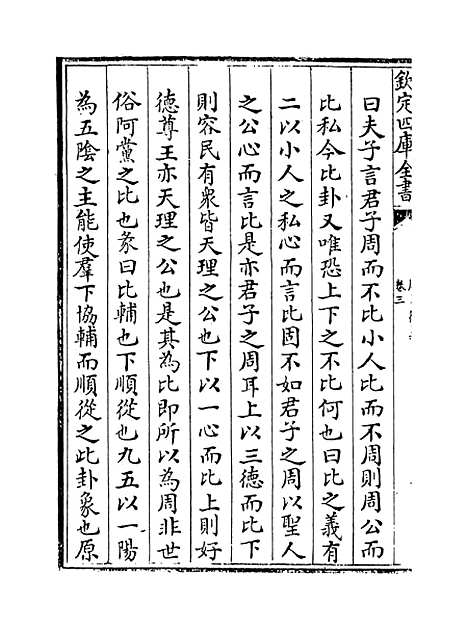 欽定四庫全書
卷三
曰夫子言君子周而不比小人比而不周則周公而
比私今比卦又唯恐上下之不比何也曰比之義有
二以小人之私心而言比固不如君子之周以聖人
之公心而言比是亦君子之周耳上以三德而比下
則容民有衆皆天理之公也下以一心而比上則好
德尊王亦天理之公也是其為比即所以為周非世
俗阿黨之比也彖曰比輔也下順從也九五以一陽
為五陰之主能使羣下協輔而順從之此卦象也原